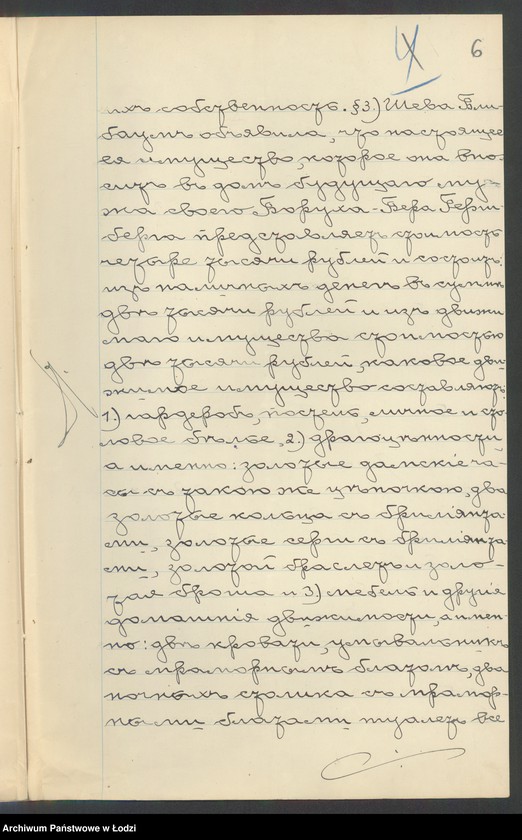 6
ихъ собственность. §3.) Шева Бли-
баумъ объявила, что настоящее
ея имущество, которое она вно-
ситъ въ домъ будущаго му-
жа своего Боруха-Бера Герш-
берга представляетъ стоимость
четыре тысячи рублей и состоитъ:
изъ наличныхъ денегъ въ суммѣ
двѣ тысячи рублей и изъ движи-
маго имущества стоимостью
двѣ тысячи рублей, каковое дви-
жимое имущество составляютъ:
1.) гардеробъ, постель, личное и сто-
ловое бѣлье, 2.) драгоцѣнности,
а именно: золотые дамскіе ча-
сы съ такою же цѣпочкою, два
золотые кольца съ брилліянта-
ми, золотые серги съ брилліянта-
ми, золотой браслетъ и золо-
тая брошка и 3.) мебель и другія
домашнія движимости, а имен-
но: двѣ кровати, умывальникъ
съ мраморнымъ блатомъ, два
ночныхъ столика съ мрамор-
ными блатами туалетъ все
Archiwum Państwowe w Łodzi